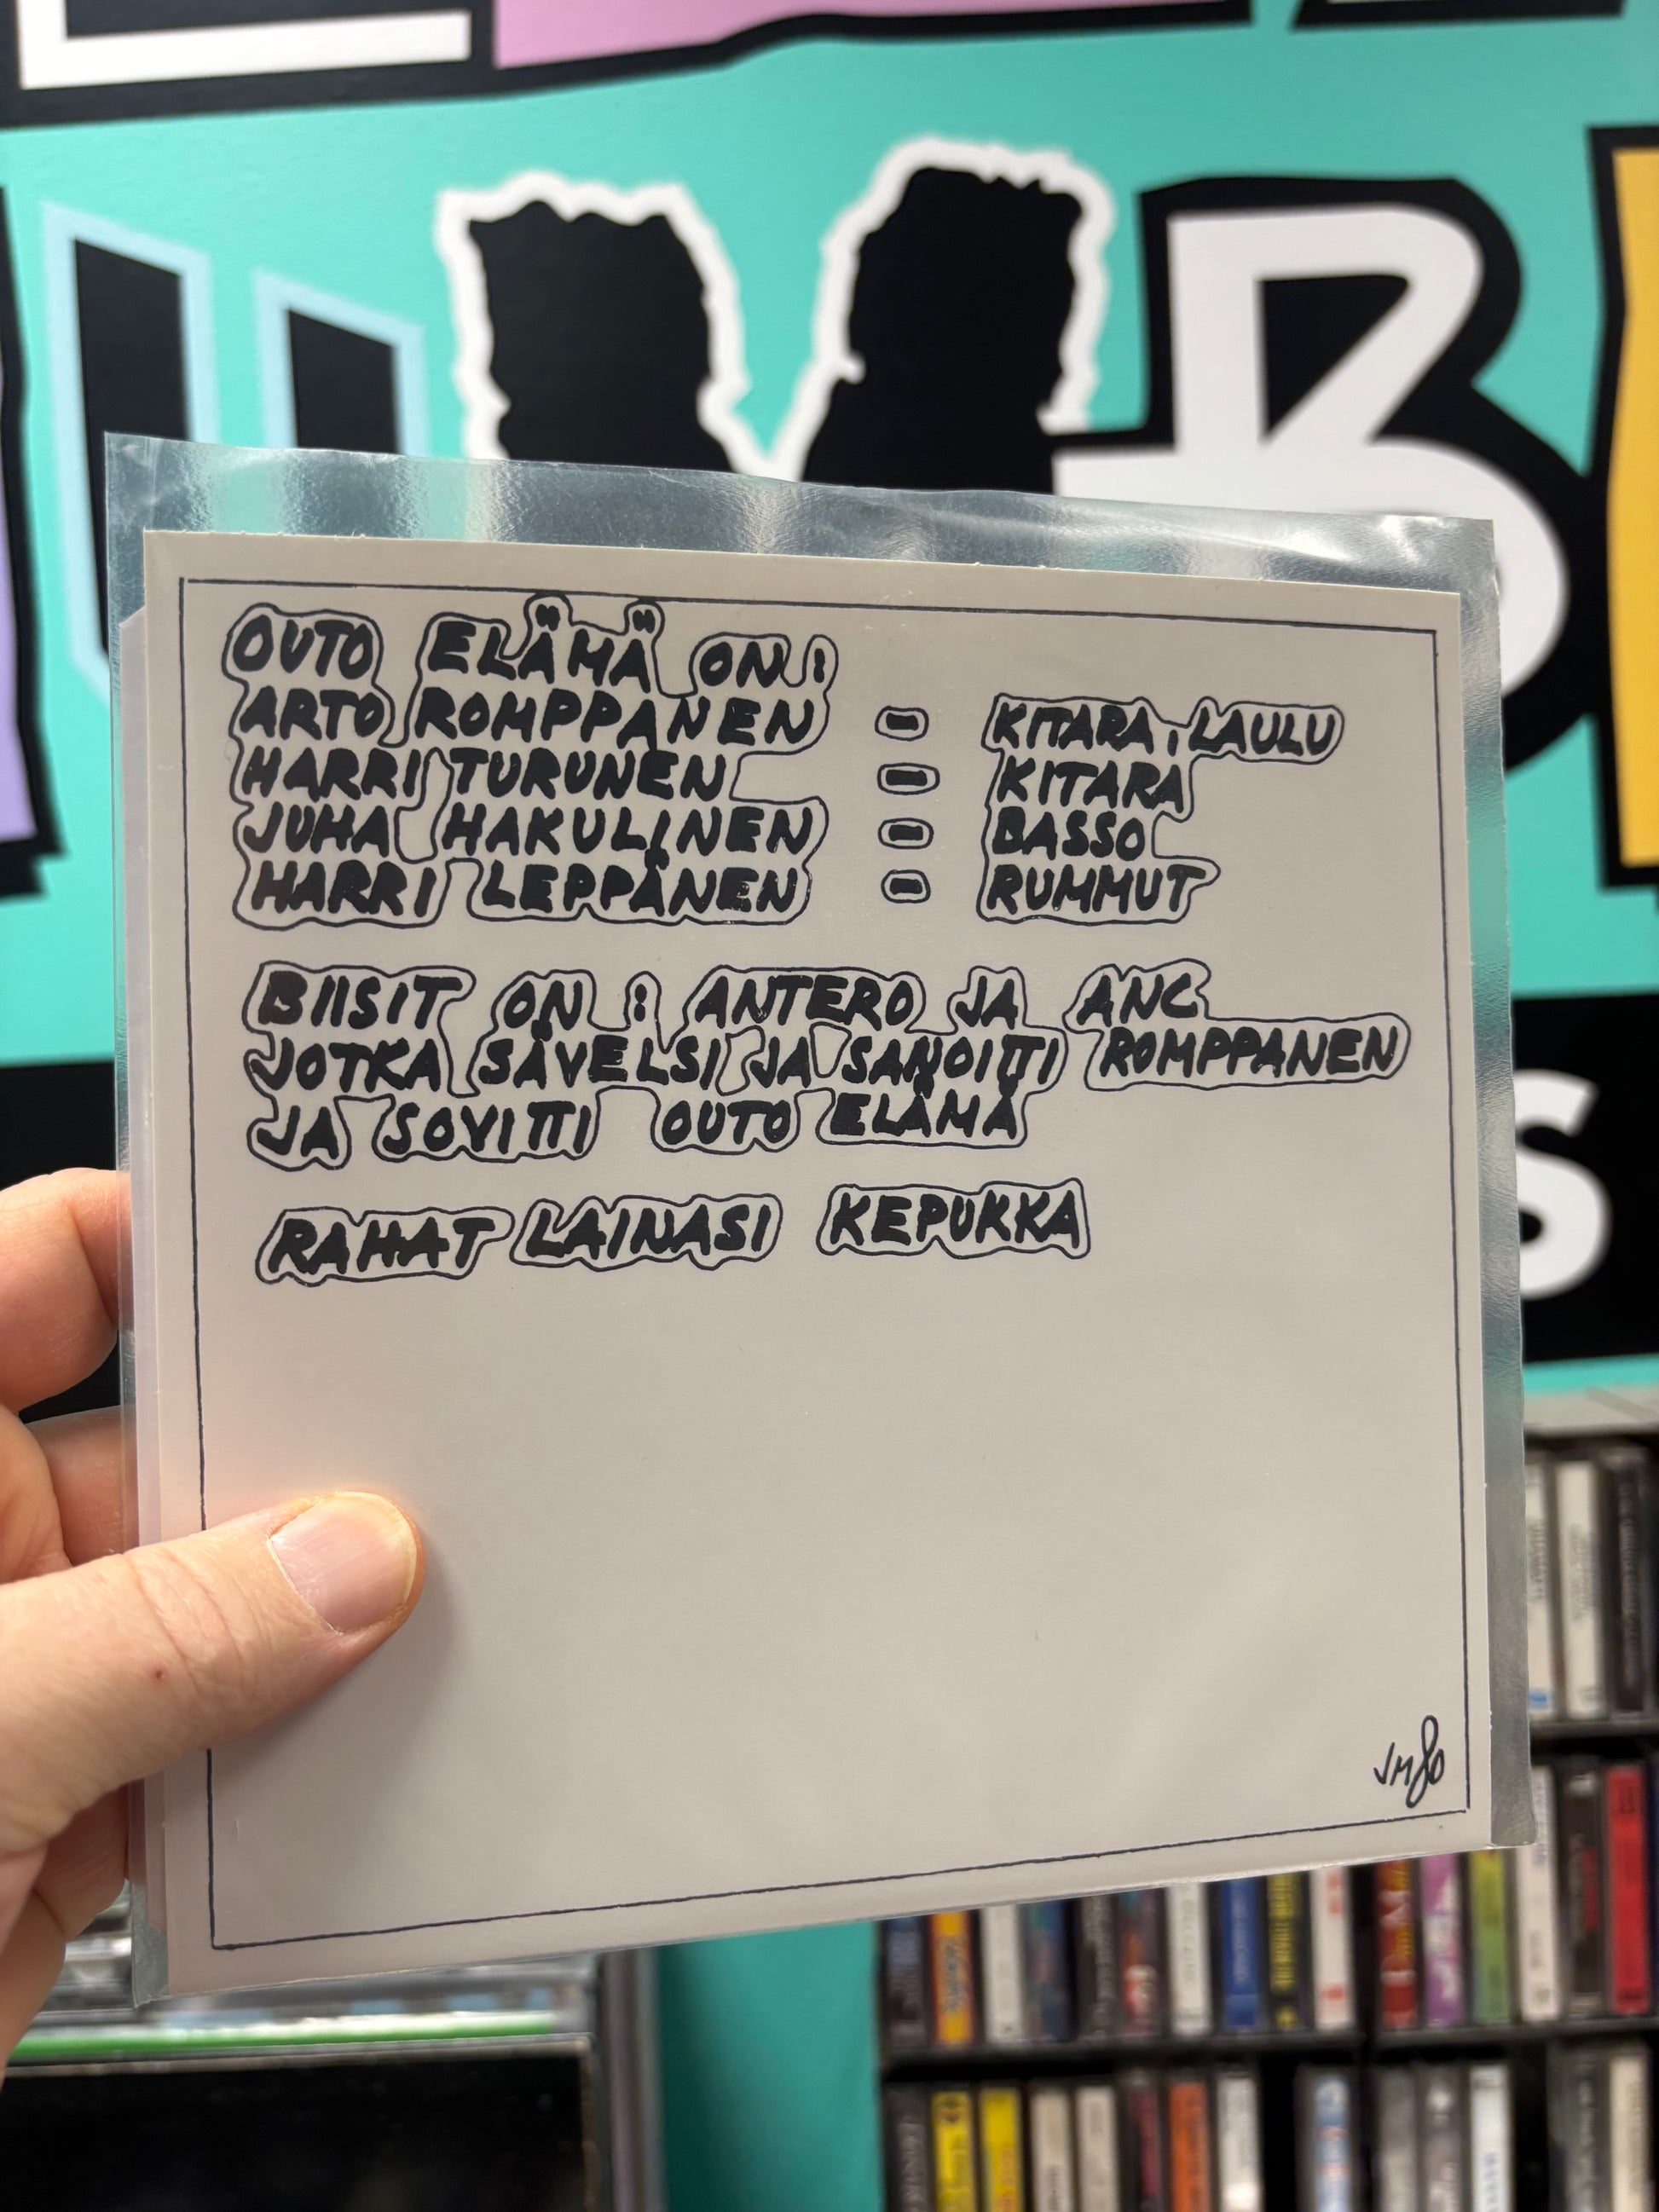 OUTO ELÄMÄ ON:
ARTO ROMPPANEN - KITARA, LAULU
HARRI TURUNEN - KITARA
JUHA HAKULINEN - BASSO
HARRI LEPPÄNEN - RUMMUT
BIISIT ON: ANTERO JA ANC
JOTKA SÄVELSI JA SANOITTI ROMPPANEN
JA SOVITTI OUTO ELÄMÄ
RAHAT LAINASI KEPUKKA